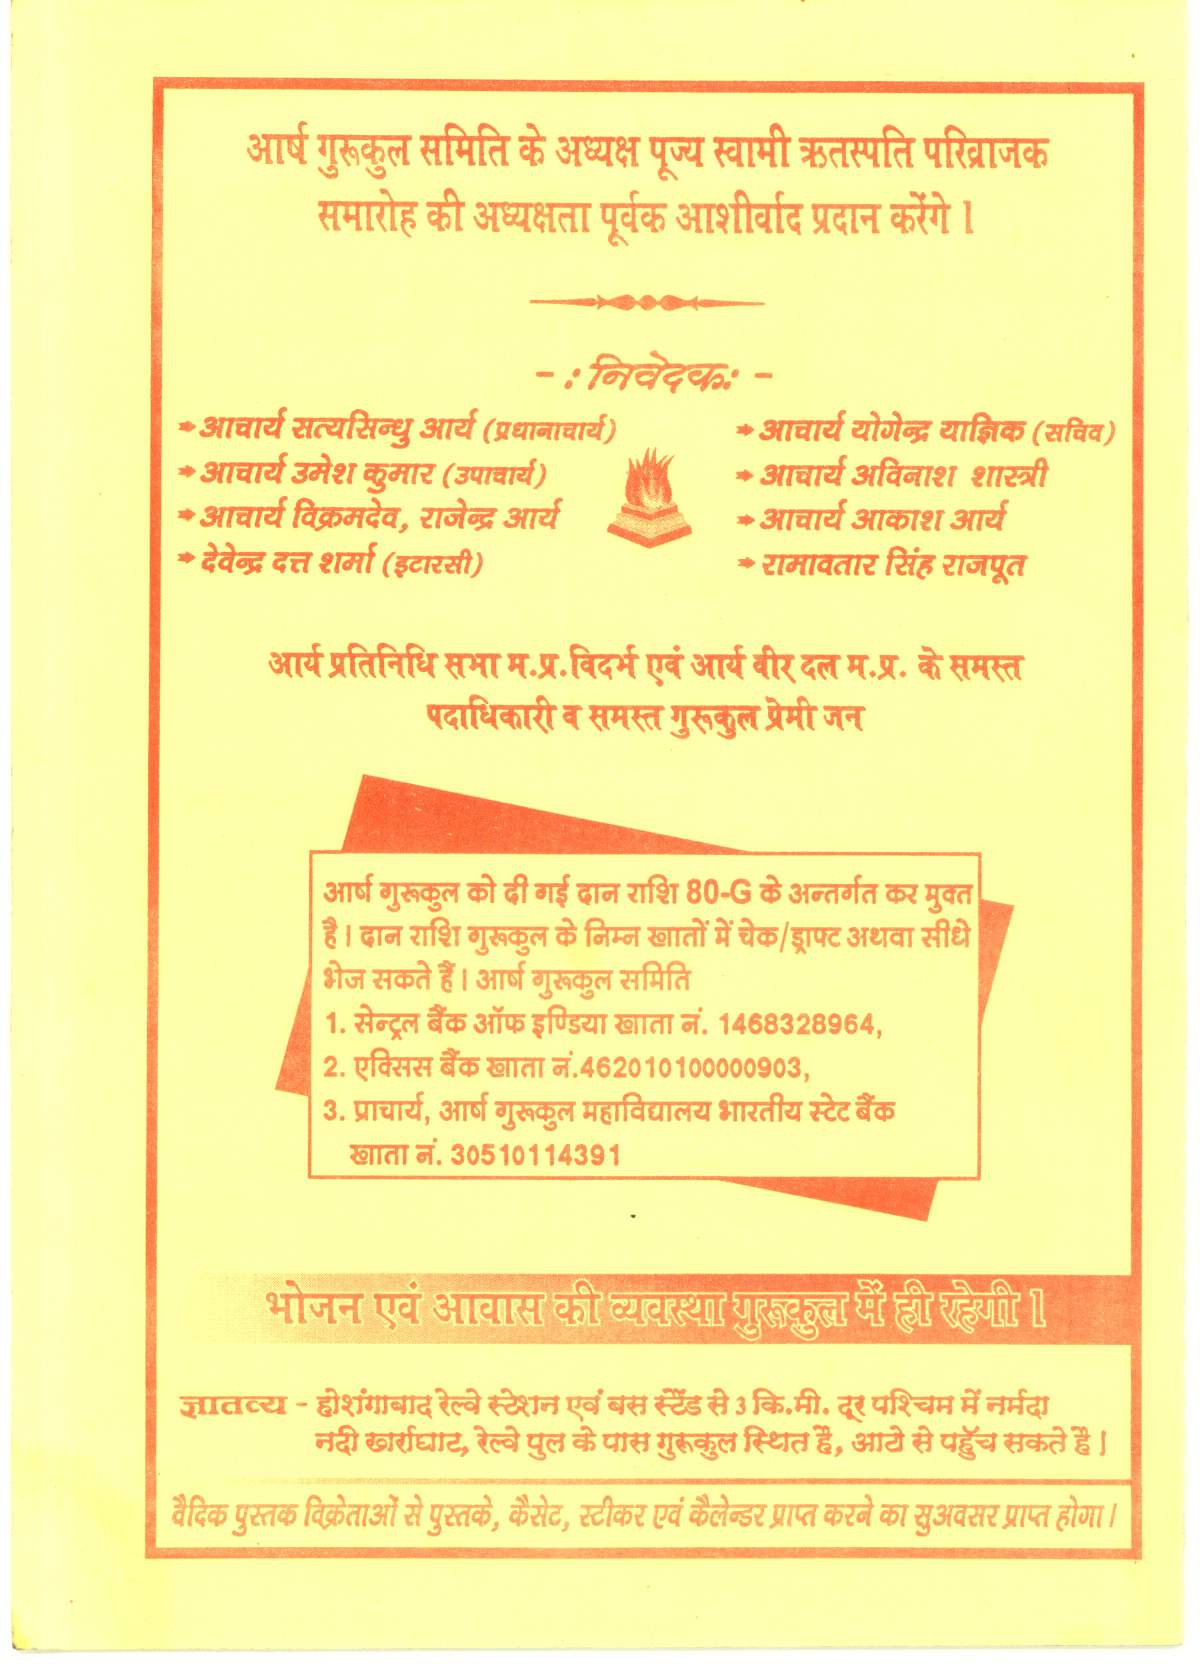 आर्ष गुरूकुल समिति के अध्यक्ष पूज्य स्वामी ऋतस्पति परिव्राजक
समारोह की अध्यक्षता पूर्वक आशीर्वाद प्रदान करेंगे ।
- : निवेदक: -
आचार्य सत्यसिन्धु आर्य (प्रधानाचार्य)
आचार्य उमेश कुमार (उपाचार्य)
आचार्य विक्रमदेव, राजेन्द्र आर्य
देवेन्द्र दत्त शर्मा (इटारसी)
आचार्य योगेन्द्र याज्ञिक (सचिव)
आचार्य अविनाश शास्त्री
आचार्य आकाश आर्य
रामावतार सिंह राजपूत
आर्य प्रतिनिधि सभा म.प्र.विदर्भ एवं आर्य वीर दल म.प्र. के समस्त
पदाधिकारी व समस्त गुरूकुल प्रेमी जन
आर्ष गुरूकुल को दी गई दान राशि 80-G के अन्तर्गत कर मुक्त
है । दान राशि गुरूकुल के निम्न खातों में चेक/ड्राफ्ट अथवा सीधे
भेज सकते हैं । आर्ष गुरूकुल समिति
1. सेन्ट्रल बैंक ऑफ इण्डिया खाता नं. 1468328964,
2. एक्सिस बैंक खाता नं.462010100000903,
3. प्राचार्य, आर्ष गुरूकुल महाविद्यालय भारतीय स्टेट बैंक
खाता नं. 30510114391
भोजन एवं आवास की व्यवस्था गुरूकुल में ही रहेगी ।
ज्ञातव्य - होशंगाबाद रेल्वे स्टेशन एवं बस स्टेंड से 3 कि.मी. दूर पश्चिम में नर्मदा
नदी खर्राघाट, रेल्वे पुल के पास गुरूकुल स्थित है, आटो से पहुँच सकते है ।
वैदिक पुस्तक विक्रेताओं से पुस्तके, कैसेट, स्टीकर एवं कैलेन्डर प्राप्त करने का सुअवसर प्राप्त होगा ।